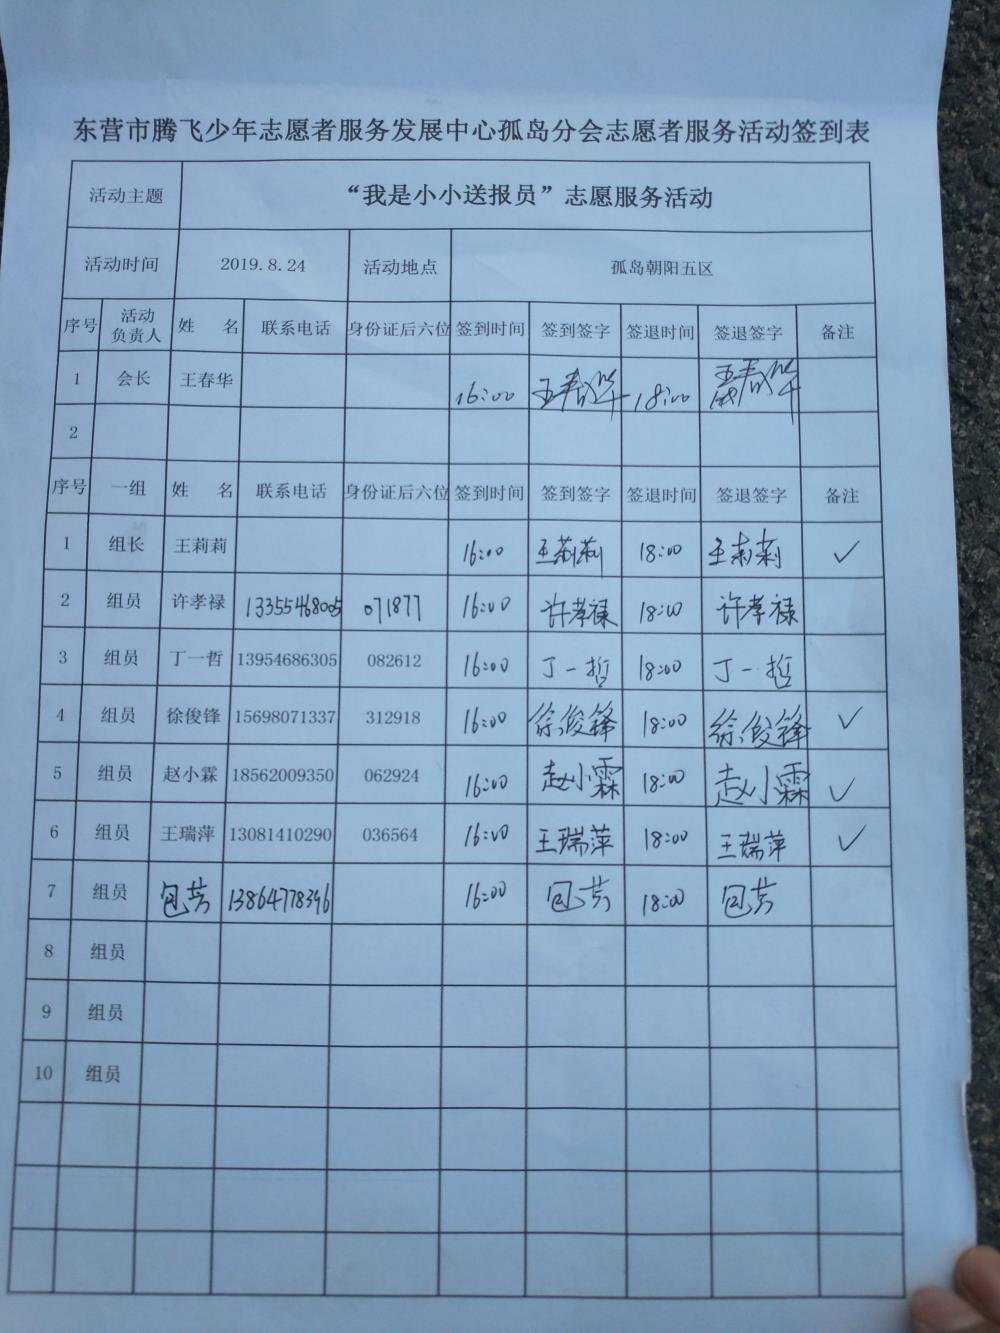 东营市腾飞少年志愿者服务发展中心孤岛分会志愿者服务活动签到表
活动主题 “我是小小送报员”志愿服务活动
活动时间 2019.8.24 活动地点 孤岛朝阳五区
序号 活动负责人 姓 名 联系电话 身份证后六位 签到时间 签到签字 签退时间 签退签字 备注
1 会长 王春华 16:00 王春华 18:00 王春华
2
序号 一组 姓 名 联系电话 身份证后六位 签到时间 签到签字 签退时间 签退签字 备注
1 组长 王莉莉 16:00 王莉莉 18:00 王莉莉 ✓
2 组员 许孝禄 13355468005 071877 16:00 许孝禄 18:00 许孝禄
3 组员 丁一哲 13954686305 082612 16:00 丁一哲 18:00 丁一哲
4 组员 徐俊锋 15698071337 312918 16:00 徐俊锋 18:00 徐俊锋 ✓
5 组员 赵小霖 18562009350 062924 16:00 赵小霖 18:00 赵小霖 ✓
6 组员 王瑞萍 13081410290 036564 16:00 王瑞萍 18:00 王瑞萍 ✓
7 组员 包芳 13864778396 16:00 包芳 18:00 包芳
8 组员
9 组员
10 组员